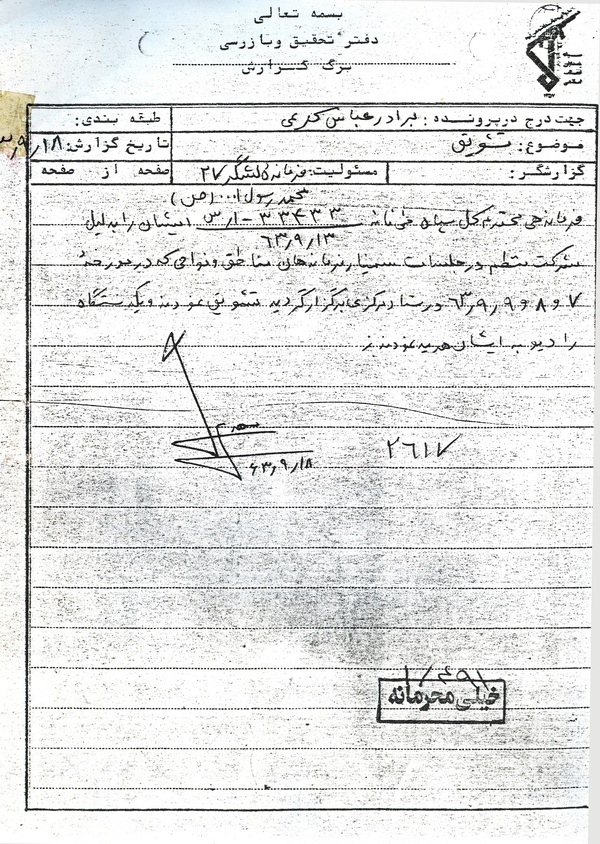 بسمه تعالی
دفتر تحقیق و بازرسی
برگ گزارش
جهت درج در پرونده : برادر عباس کریمی
طبقه بندی:
موضوع: تشویق
تاریخ گزارش: ۶۳٫۹٫۱۸
گزارشگر:
مسئولیت: فرمانده لشگر ۲۷
محمد رسول ا... (ص)
صفحه از صفحه
فرماندهی محترم کل سپاه طی نامه ۳۳۴۳۳-ارس ایشان را بدلیل
۶۳٫۹٫۱۳
شرکت منظم در جلسات سمینار فرماندهان مناطق و نواحی که در مورخه
۷ و ۸ و ۹٫۹٫۶۳ در ستاد مرکزی برگزار گردید تشویق نمودند و یکدستگاه
رادیو به ایشان هدیه نمودند
۶۳٫۹٫۱۸
۲۶۱۷
خیلی محرمانه